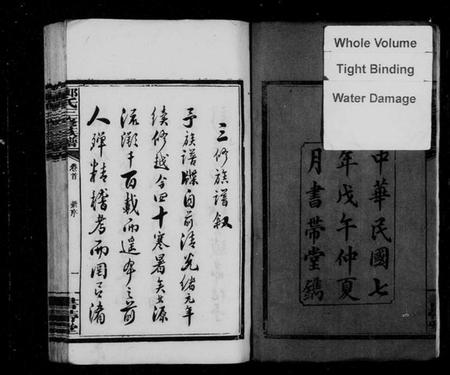 Whole Volume
Tight Binding
Water Damage
中華民國七
年戊午仲夏
月書帶堂鐫
三修族譜敘
予族譜牒自前清光緒元年
續修越今四十寒暑矣源
流灝千百載而遙本之前
人殫精稽考而罔有渚
卷首
一